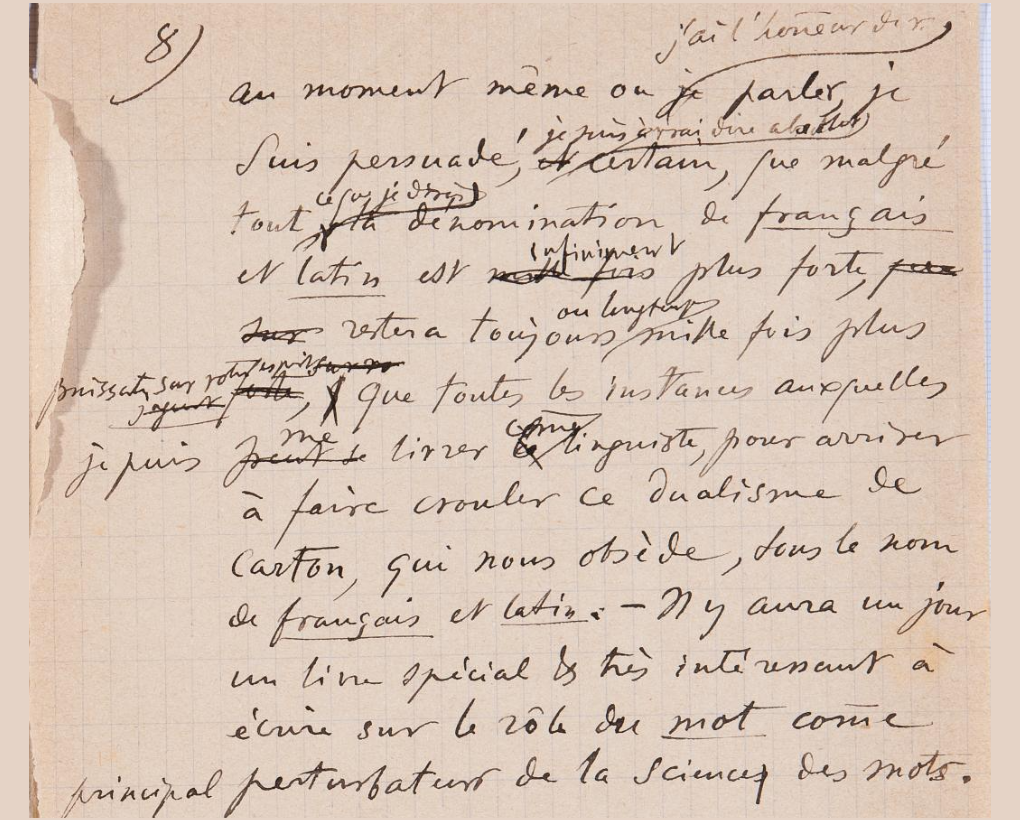 8)
j'ai l'honneur de v.
au moment même ou je parler, je
je puis vrai dire
suis persuadé, et certain, que malgré
ce que je dirais
tout, la dénomination de français
infiniment
et latin est mille fois plus forte, 
ou longtemps
sur restera toujours mille fois plus
puissante sur votre esprit sur
forte, que toutes les instances auxquelles
me come
je puis peut se livrer le linguiste, pour arriver
à faire crouler ce dualisme de
carton, qui nous obsède, sous le nom
de français et latin. – Il y aura un jour
un livre spécial & très intéressant à
écrire sur le rôle du mot come
principal perturbateur de la science des mots.